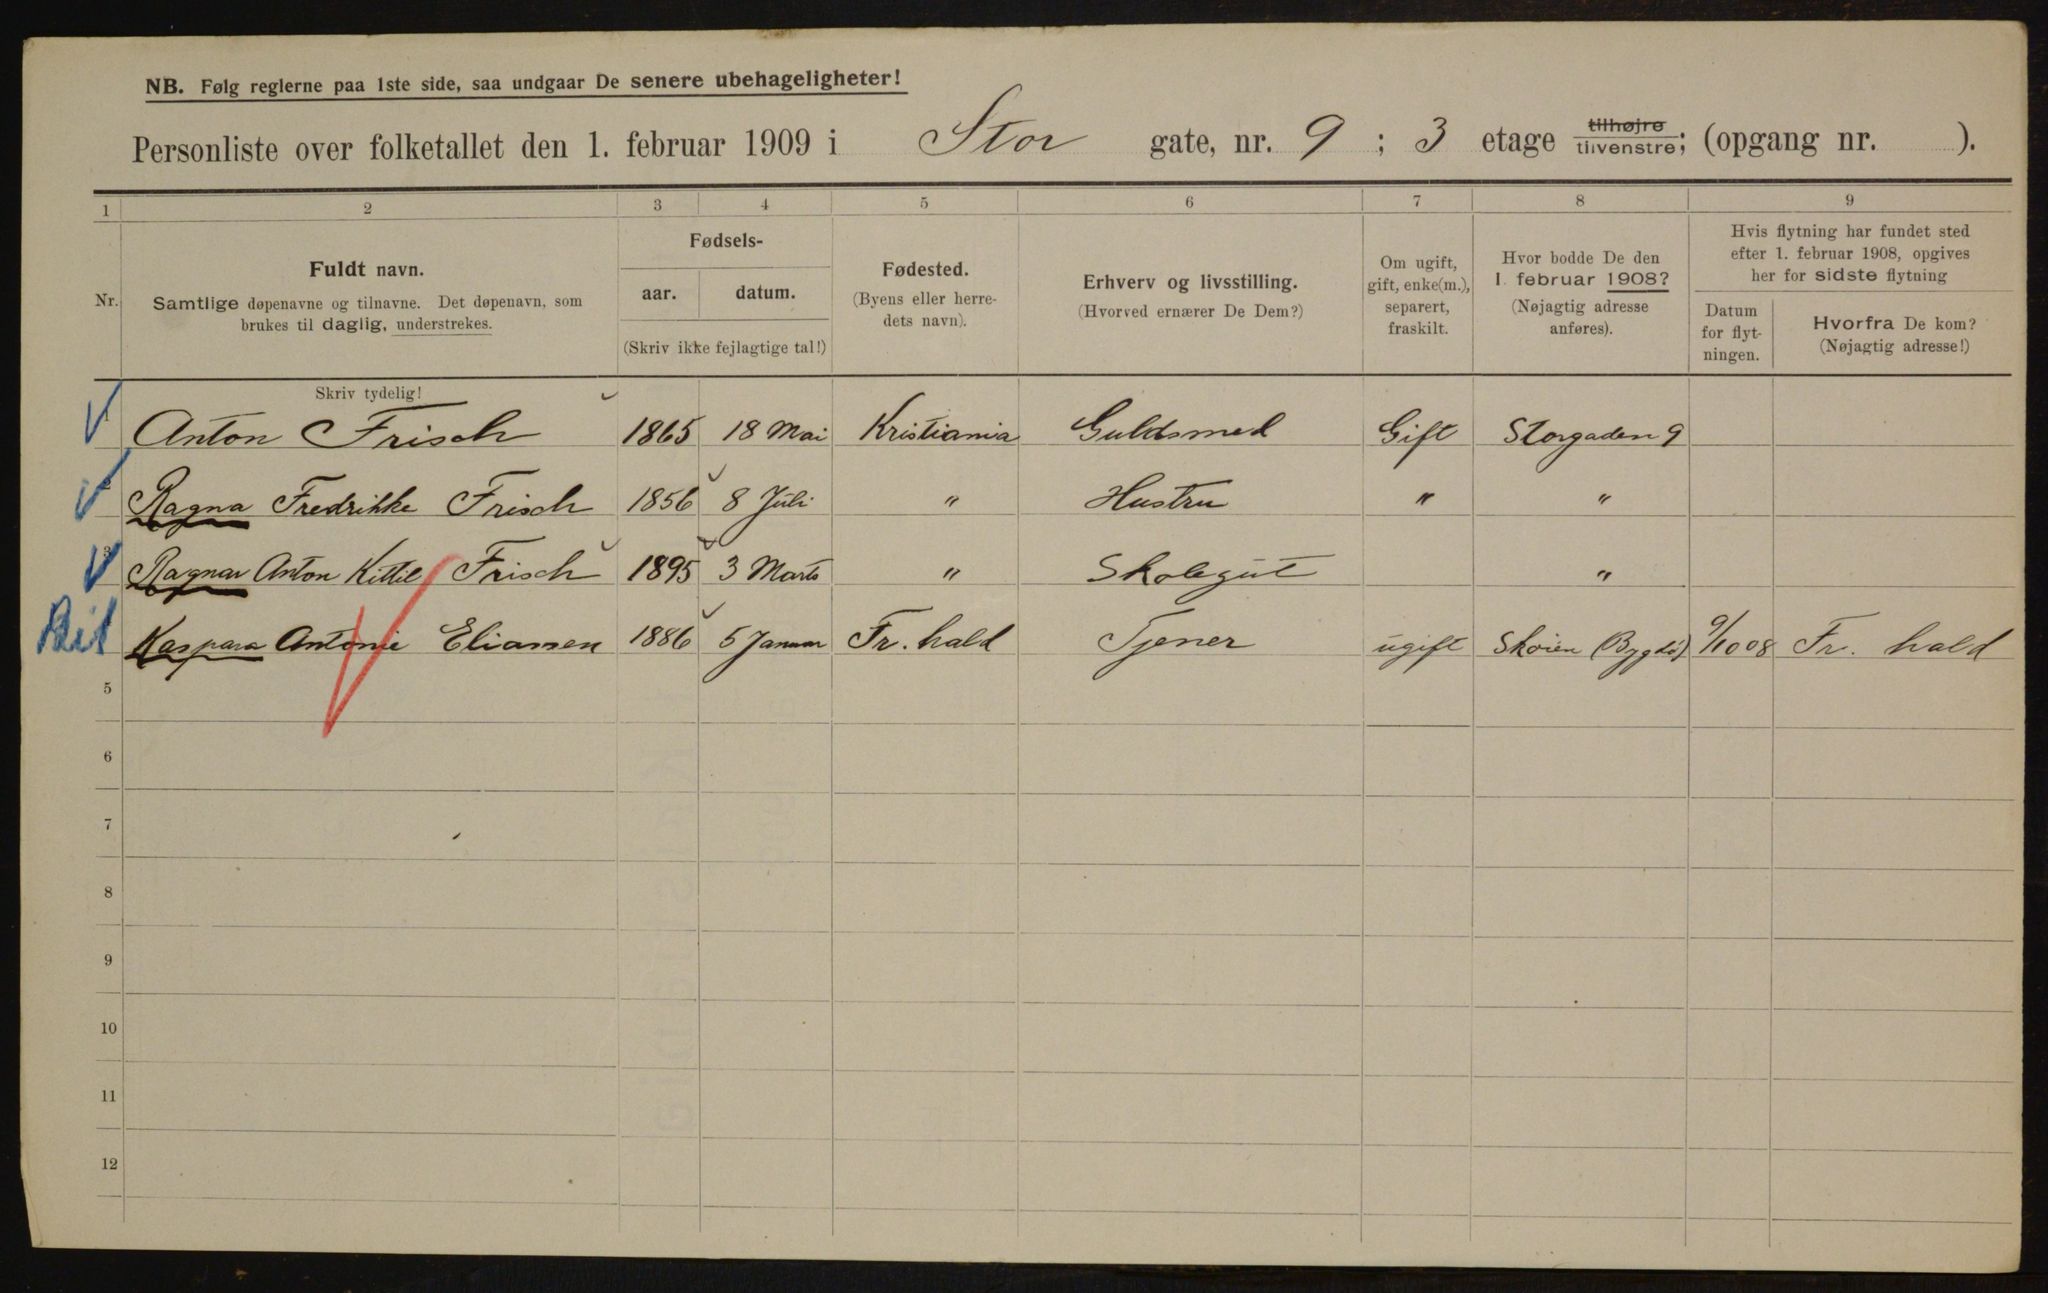 NB. Følg reglerne paa 1ste side, saa undgaar De senere ubehageligheter!
Personliste over folketallet den 1. februar 1909 i Stor gate, nr. 9 ; 3 etage tilhøjre tilvenstre; (opgang nr. ).
1 2 3 4 5 6 7 8 9
Nr.
Fuldt navn.
Samtlige døpenavne og tilnavne. Det døpenavn, som
brukes til daglig, understrekes.
Fødsels-
aar. datum.
(Skriv ikke fejlagtige tal!)
Fødested.
(Byens eller herre-
dets navn).
Erhverv og livsstilling.
(Hvorved ernærer De Dem?)
Om ugift,
gift, enke(m.),
separert,
fraskilt.
Hvor bodde De den
1. februar 1908?
(Nøjagtig adresse
anføres).
Hvis flytning har fundet sted
efter 1. februar 1908, opgives
her for sidste flytning
Datum
for flyt-
ningen.
Hvorfra De kom?
(Nøjagtig adresse!)
Skriv tydelig!
1 Anton Frisch 1865 18 Mai Kristiania Guldsmed Gift Storgaden 9
2 Ragna Fredrikke Frisch 1856 8 Juli " Hustru " "
3 Ragnar Anton Kittil Frisch 1895 3 Marts " Skolegut "
Kaspara Antonie Eliassen 1886 5 Januar Fr. hald Tjener ugift Skøien (Bygdø) 9/10 08 Fr. hald
5
6
7
8
9
10
11
12